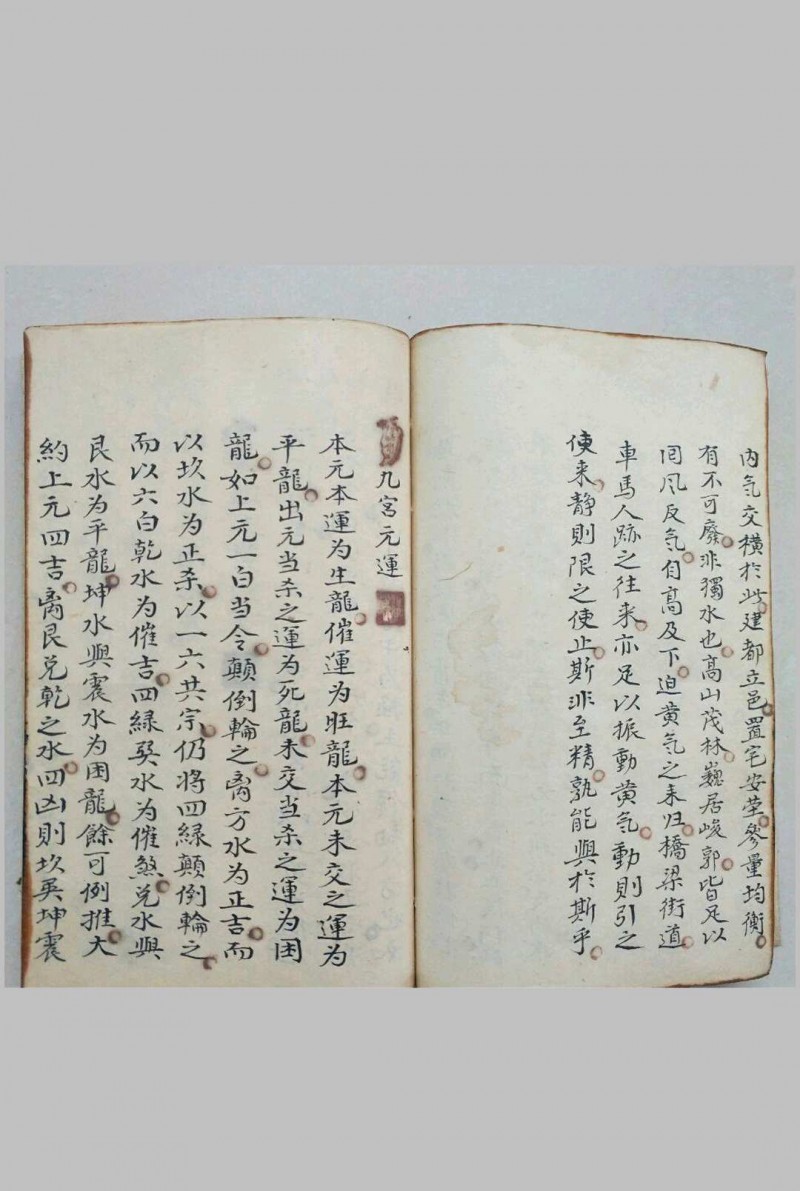 內气交横於此建都立邑置宅安茔參量均衡
有不可廢非獨水也高山茂林巍居峻郭皆足以
囘风反气自高及下迫黄气之未归橋梁街道
車馬人跡之往来亦足以振動黄气動則引之
使来静則限之使止斯非至精孰能與於斯乎
九宫元運
本元本運为生龍催運为旺龍本元未交之運为
平龍出元当杀之運为死龍未交当杀之運为困
龍如上元一白当令顛倒輪之离方水为正吉而
以坎水为正杀以一六共宗仍将四緑顛倒輪之
而以六白乾水为催吉四緑巽水为催煞兑水與
艮水为平龍坤水與震水为困龍餘可例推大
約上元四吉离艮兑乾之水四凶則坎巽坤震